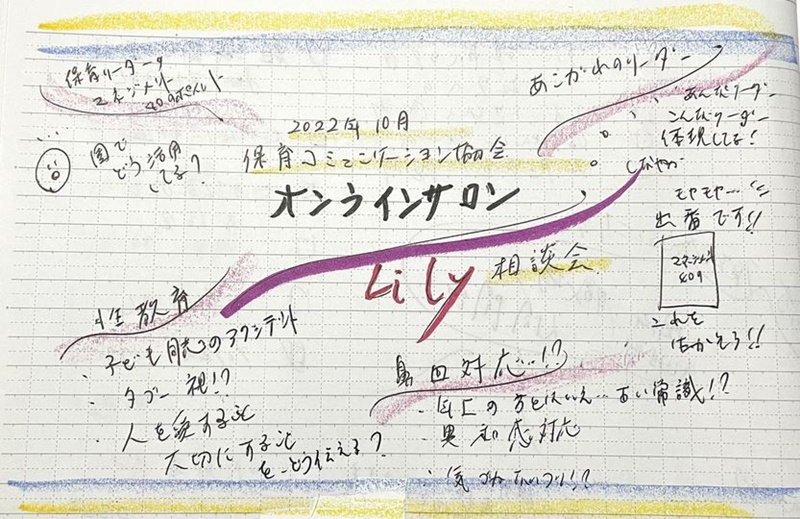 保育リーダーの
マネジメント
40のポイント
園で
どう活用
してる?
2022年10月
保育コミュニケーション協会
オンラインサロン
Lily 相談会
あこがれのリーダー
あんなリーダー
こんなリーダー
体現してる!
しなやか
モヤモヤ…
出番です!!
マネジメント
40の
これを
活かそう!!
性教育
・子ども同志のアクシデント
・タブー視!?
・人を愛すること
大切にすること
を…どう伝える?
対応…!?
の方とはいえ…古い常識!?
・異和感対応
・気づかないフリ!?